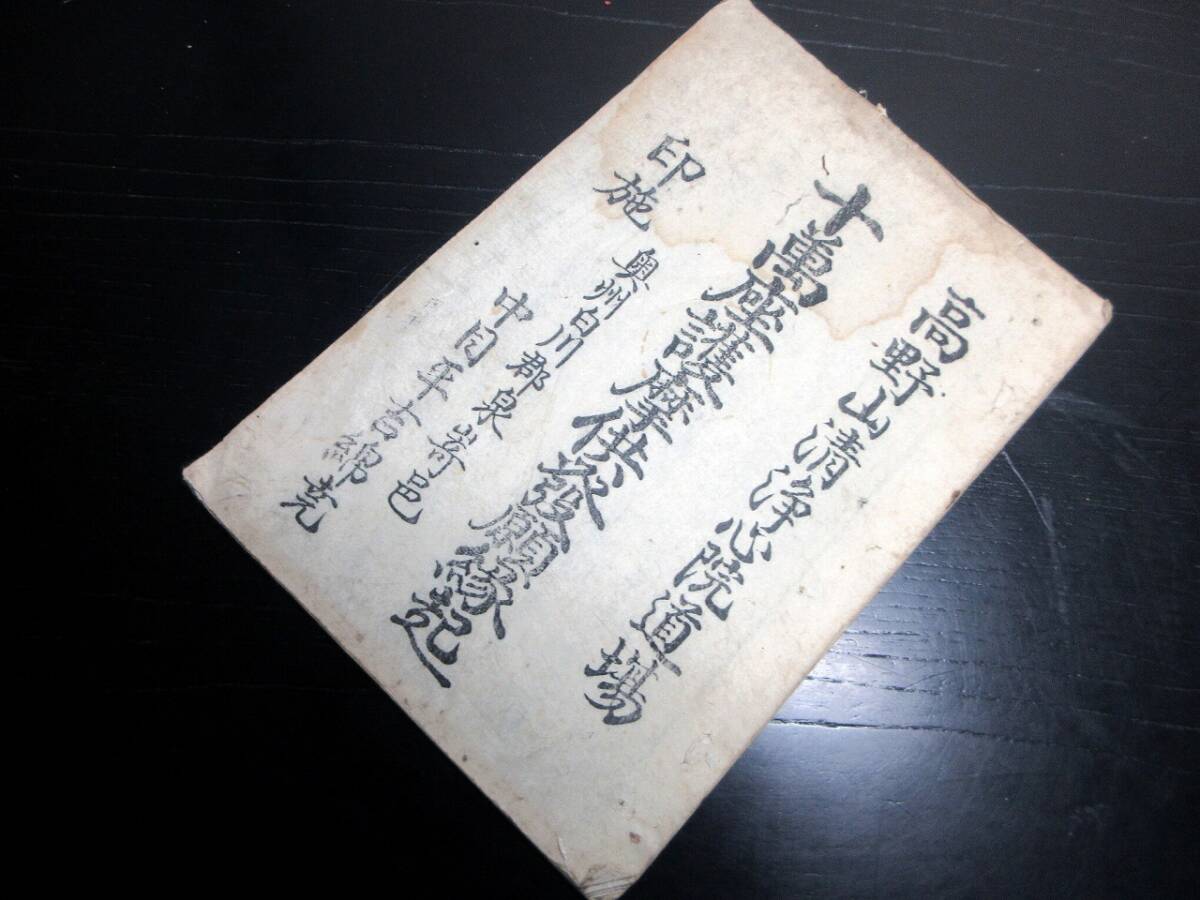 高野山清浄心院道場
十萬座護摩供發願縁起
印施
奥州白川郡泉嵜邑
中目平吉綿亮